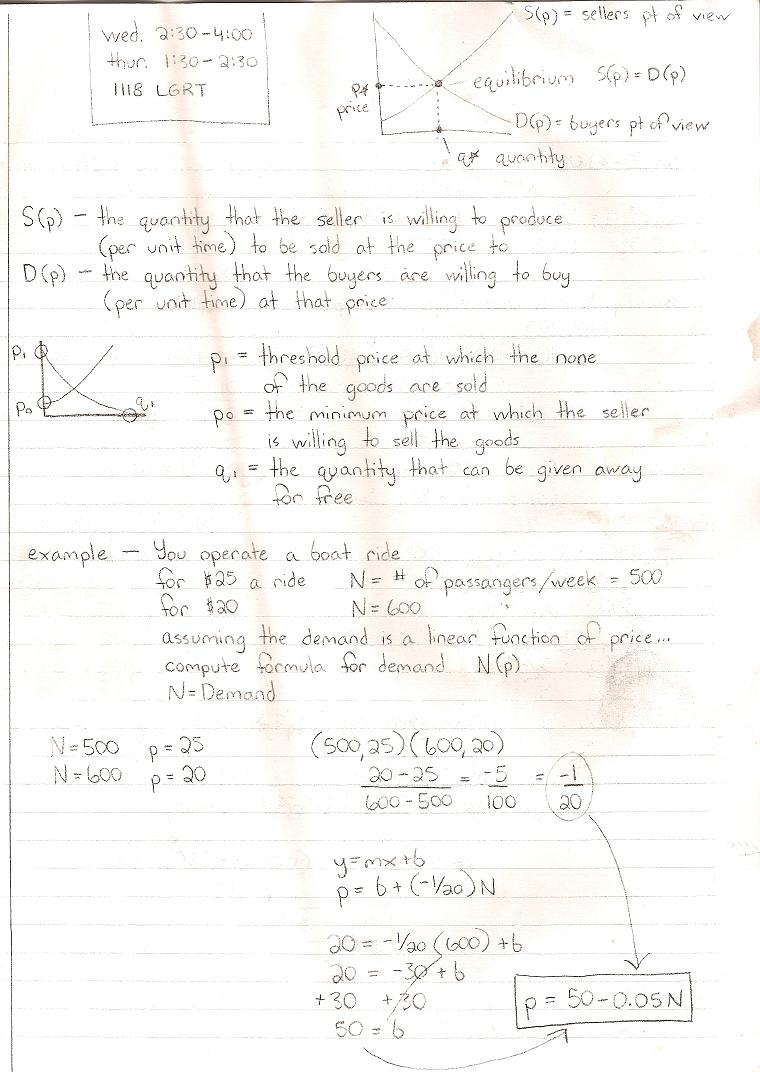 wed. 2:30-4:00
thur. 1:30-2:30
1118 LGRT
S(p) = sellers pt of view
p*
price
equilibrium S(p) = D(p)
D(p) = buyers pt of view
q* quantity
S(p) - the quantity that the seller is willing to produce
(per unit time) to be sold at the price to
D(p) - the quantity that the buyers are willing to buy
(per unit time) at that price
p₁
p₀
q₁
p₁ = threshold price at which the none
of the goods are sold
p₀ = the minimum price at which the seller
is willing to sell the goods
q₁ = the quantity that can be given away
for free
example - You operate a boat ride
for $25 a ride N = # of passangers/week = 500
for $20 N = 600
assuming the demand is a linear function of price...
compute formula for demand N(p)
N = Demand
N = 500 p = 25
N = 600 p = 20
(500, 25) (600, 20)
20 - 25 / 600 - 500 = -5 / 100 = -1 / 20
y = mx + b
p = b + (-1/20) N
20 = -1/20 (600) + b
20 = -30 + b
+30 +30
50 = b
p = 50 - 0.05N